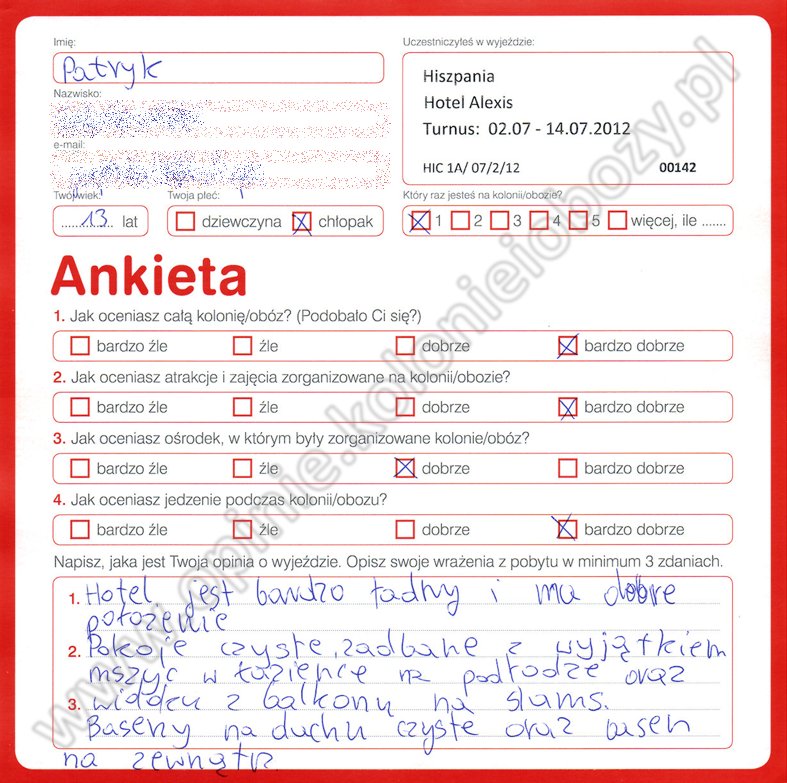 Imię:
Patryk
Uczestniczyłeś w wyjeździe:
Hiszpania
Hotel Alexis
Turnus: 02.07 - 14.07.2012
HIC 1A/ 07/2/12 00142
Nazwisko:
e-mail:
Twój wiek:
13 lat
Twoja płeć:
dziewczyna chłopak
Który raz jesteś na kolonii/obozie?
1 2 3 4 5 więcej, ile .......
Ankieta
1. Jak oceniasz całą kolonię/obóz? (Podobało Ci się?)
bardzo źle źle dobrze bardzo dobrze
2. Jak oceniasz atrakcje i zajęcia zorganizowane na kolonii/obozie?
bardzo źle źle dobrze bardzo dobrze
3. Jak oceniasz ośrodek, w którym były zorganizowane kolonie/obóz?
bardzo źle źle dobrze bardzo dobrze
4. Jak oceniasz jedzenie podczas kolonii/obozu?
bardzo źle źle dobrze bardzo dobrze
Napisz, jaka jest Twoja opinia o wyjeździe. Opisz swoje wrażenia z pobytu w minimum 3 zdaniach.
1. Hotel jest bardzo ładny i ma dobre
położenie
2. Pokoje czyste, zadbane z wyjątkiem
mszyc w łazience na podłodze oraz
3. widoku z balkonu na slams.
Baseny na duchu czyste oraz basen
na zewnątrz.
www.opinie.kolonieiobozy.pl